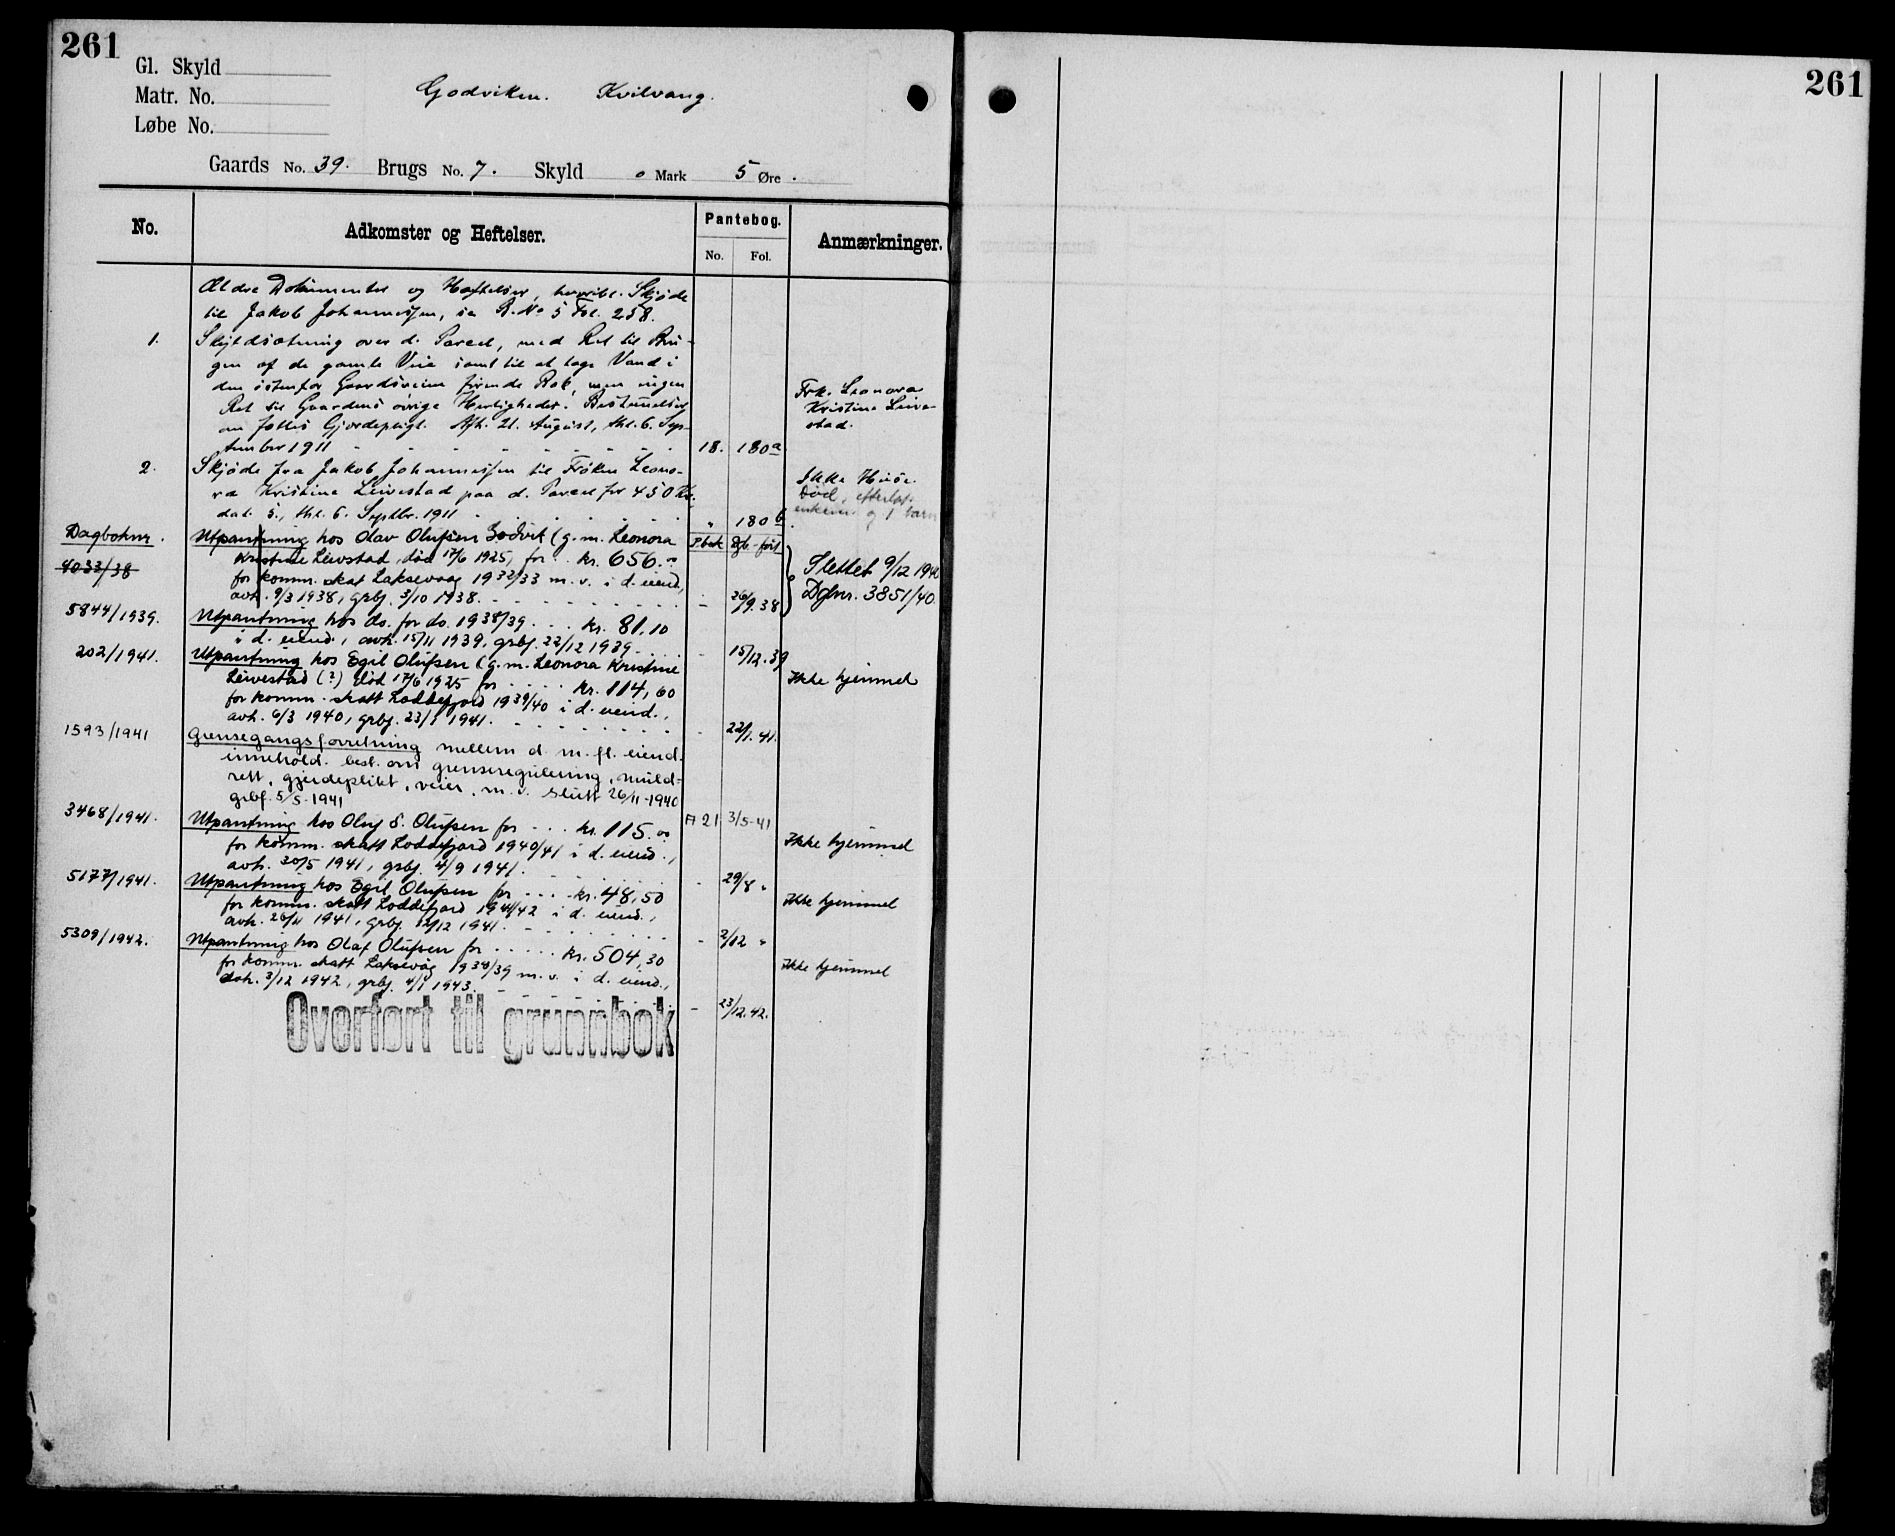 261
261
Gl. Skyld
Matr. No.
Løbe No.
Godviken. Kvilvang.
Gaards No. 39. Brugs No. 7. Skyld 0 Mark 5 Øre.
No.
Adkomster og Heftelser.
Pantebog.
No. Fol.
Anmærkninger.
Ældre Dokumenter og Heftelser, hvoribl. Skjøde
til Jakob Johannessen, se R. No 5 Fol. 258.
1. Skyldsætning over d. Parcel, med Ret til Bru-
gen af de gamle Veie samt til at tage Vand i
den østenfor Gaardsveien, men ingen
Ret til Gaardens øvrige Herligheder. Bestemmelser
om fælles Gjerdepligt. Afh. 21. August, thl. 6. Sep-
tember 1911 - - - - - 18. 180a
Frk. Leonora
Kristine Leive-
stad.
2. Skjøde fra Jakob Johannessen til Frøken Leono-
ra Kristine Leivestad paa d. Parcel for 450 Kr.
dat. 5., thl. 6. Septbr. 1911 - - - - " 180b
Ikke Huse.
Død, efterlat
enkem. og 1 barn
Dagboknr. Utpantning hos Olav Olufsen Godvik (g.m. Leonora P.bok Dgb-ført
4033/38 Kristine Leivstad, død 17/6 1925, for .. kr. 656.00
for komm. skat Laksevaag 1932/33 m.v. i d. eiend.,
avh. 9/3 1938, grbf. 3/10 1938. - - - - - 26/9.38
Slettet 9/12 1940
Dgbnr. 3851/40.
5844/1939. Utpantning hos do. for do. 1938/39 ... kr. 81.10
i d. eiend., avh. 15/11 1939, grbf. 22/12 1939 - - - 15/12.39
202/1941. Utpantning hos Egil Olufsen (g.m. Leonora Kristine
Leivestad (?) død 17/6 1925 for ..... kr. 114,60
for komm. skatt Loddefjord 1939/40 i d. eiend.,
avh. 6/3 1940, grbf. 23/1 1941. - - - - - 22/1.41.
Ikke hjemmel
1593/1941 Grensegangsforretning mellem d. m.fl. eiend.
innehold. best. om grenseregulering,
rett, gjerdeplikt, veier, m.v. slutt 26/11-1940
grbf. 5/5-1941 A 21 3/5-41
3468/1941. Utpantning hos Oluf S. Olufsen for ... kr. 115.00
for komm. skatt Loddefjord 1940/41 i d. eiend.,
avh. 20/5 1941, grbf. 4/9 1941. - - - - - 29/8 "
Ikke hjemmel
5177/1941. Utpantning hos Egil Olufsen for .... kr. 48,50
for komm. skatt Loddefjord 1941/42 i d. eiend.,
avh. 26/11 1941, grbf. 1941. - - - - - 2/12 "
Ikke hjemmel
5309/1942. Utpantning hos Olaf Olufsen for ..... kr. 504,30
for komm. skatt Laksevåg 1938/39 m.v. i d. eiend.,
avh. 3/12 1942, grbf. 4/1 1943. - - - - - 23/12.42.
Ikke hjemmel
Overført til grunnbok